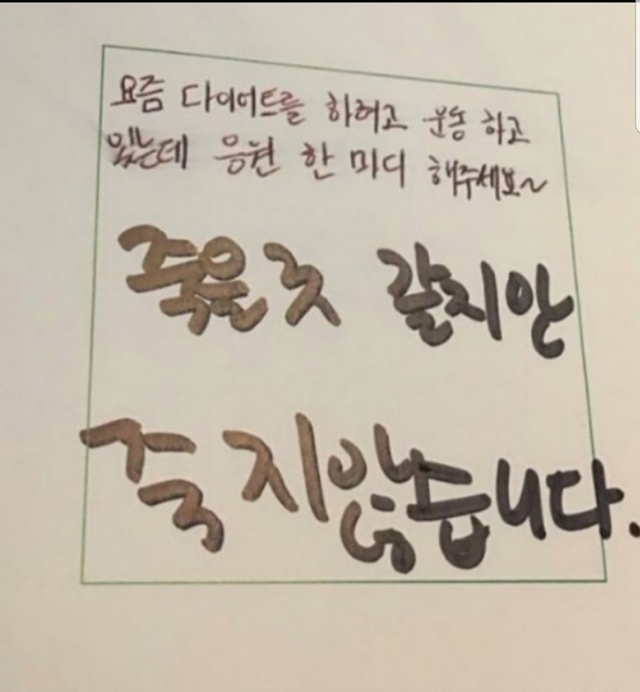 요즘 다이어트를 하려고 운동 하고
있는데 응원 한 마디 해주세요~
죽을 것 같지만
죽지 않습니다.